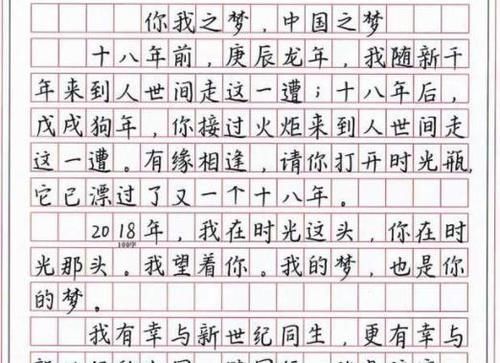 你我之梦，中国之梦
十八年前，庚辰龙年，我随新千
年来到人世间走这一遭；十八年后，
戊戌狗年，你接过火炬来到人世间走
这一遭。有缘相逢，请你打开时光瓶，
它已漂过了又一个十八年。
2018年，我在时光这头，你在时
100字
光那头。我望着你。我的梦，也是你
的梦。
我有幸与新世纪同生，更有幸与